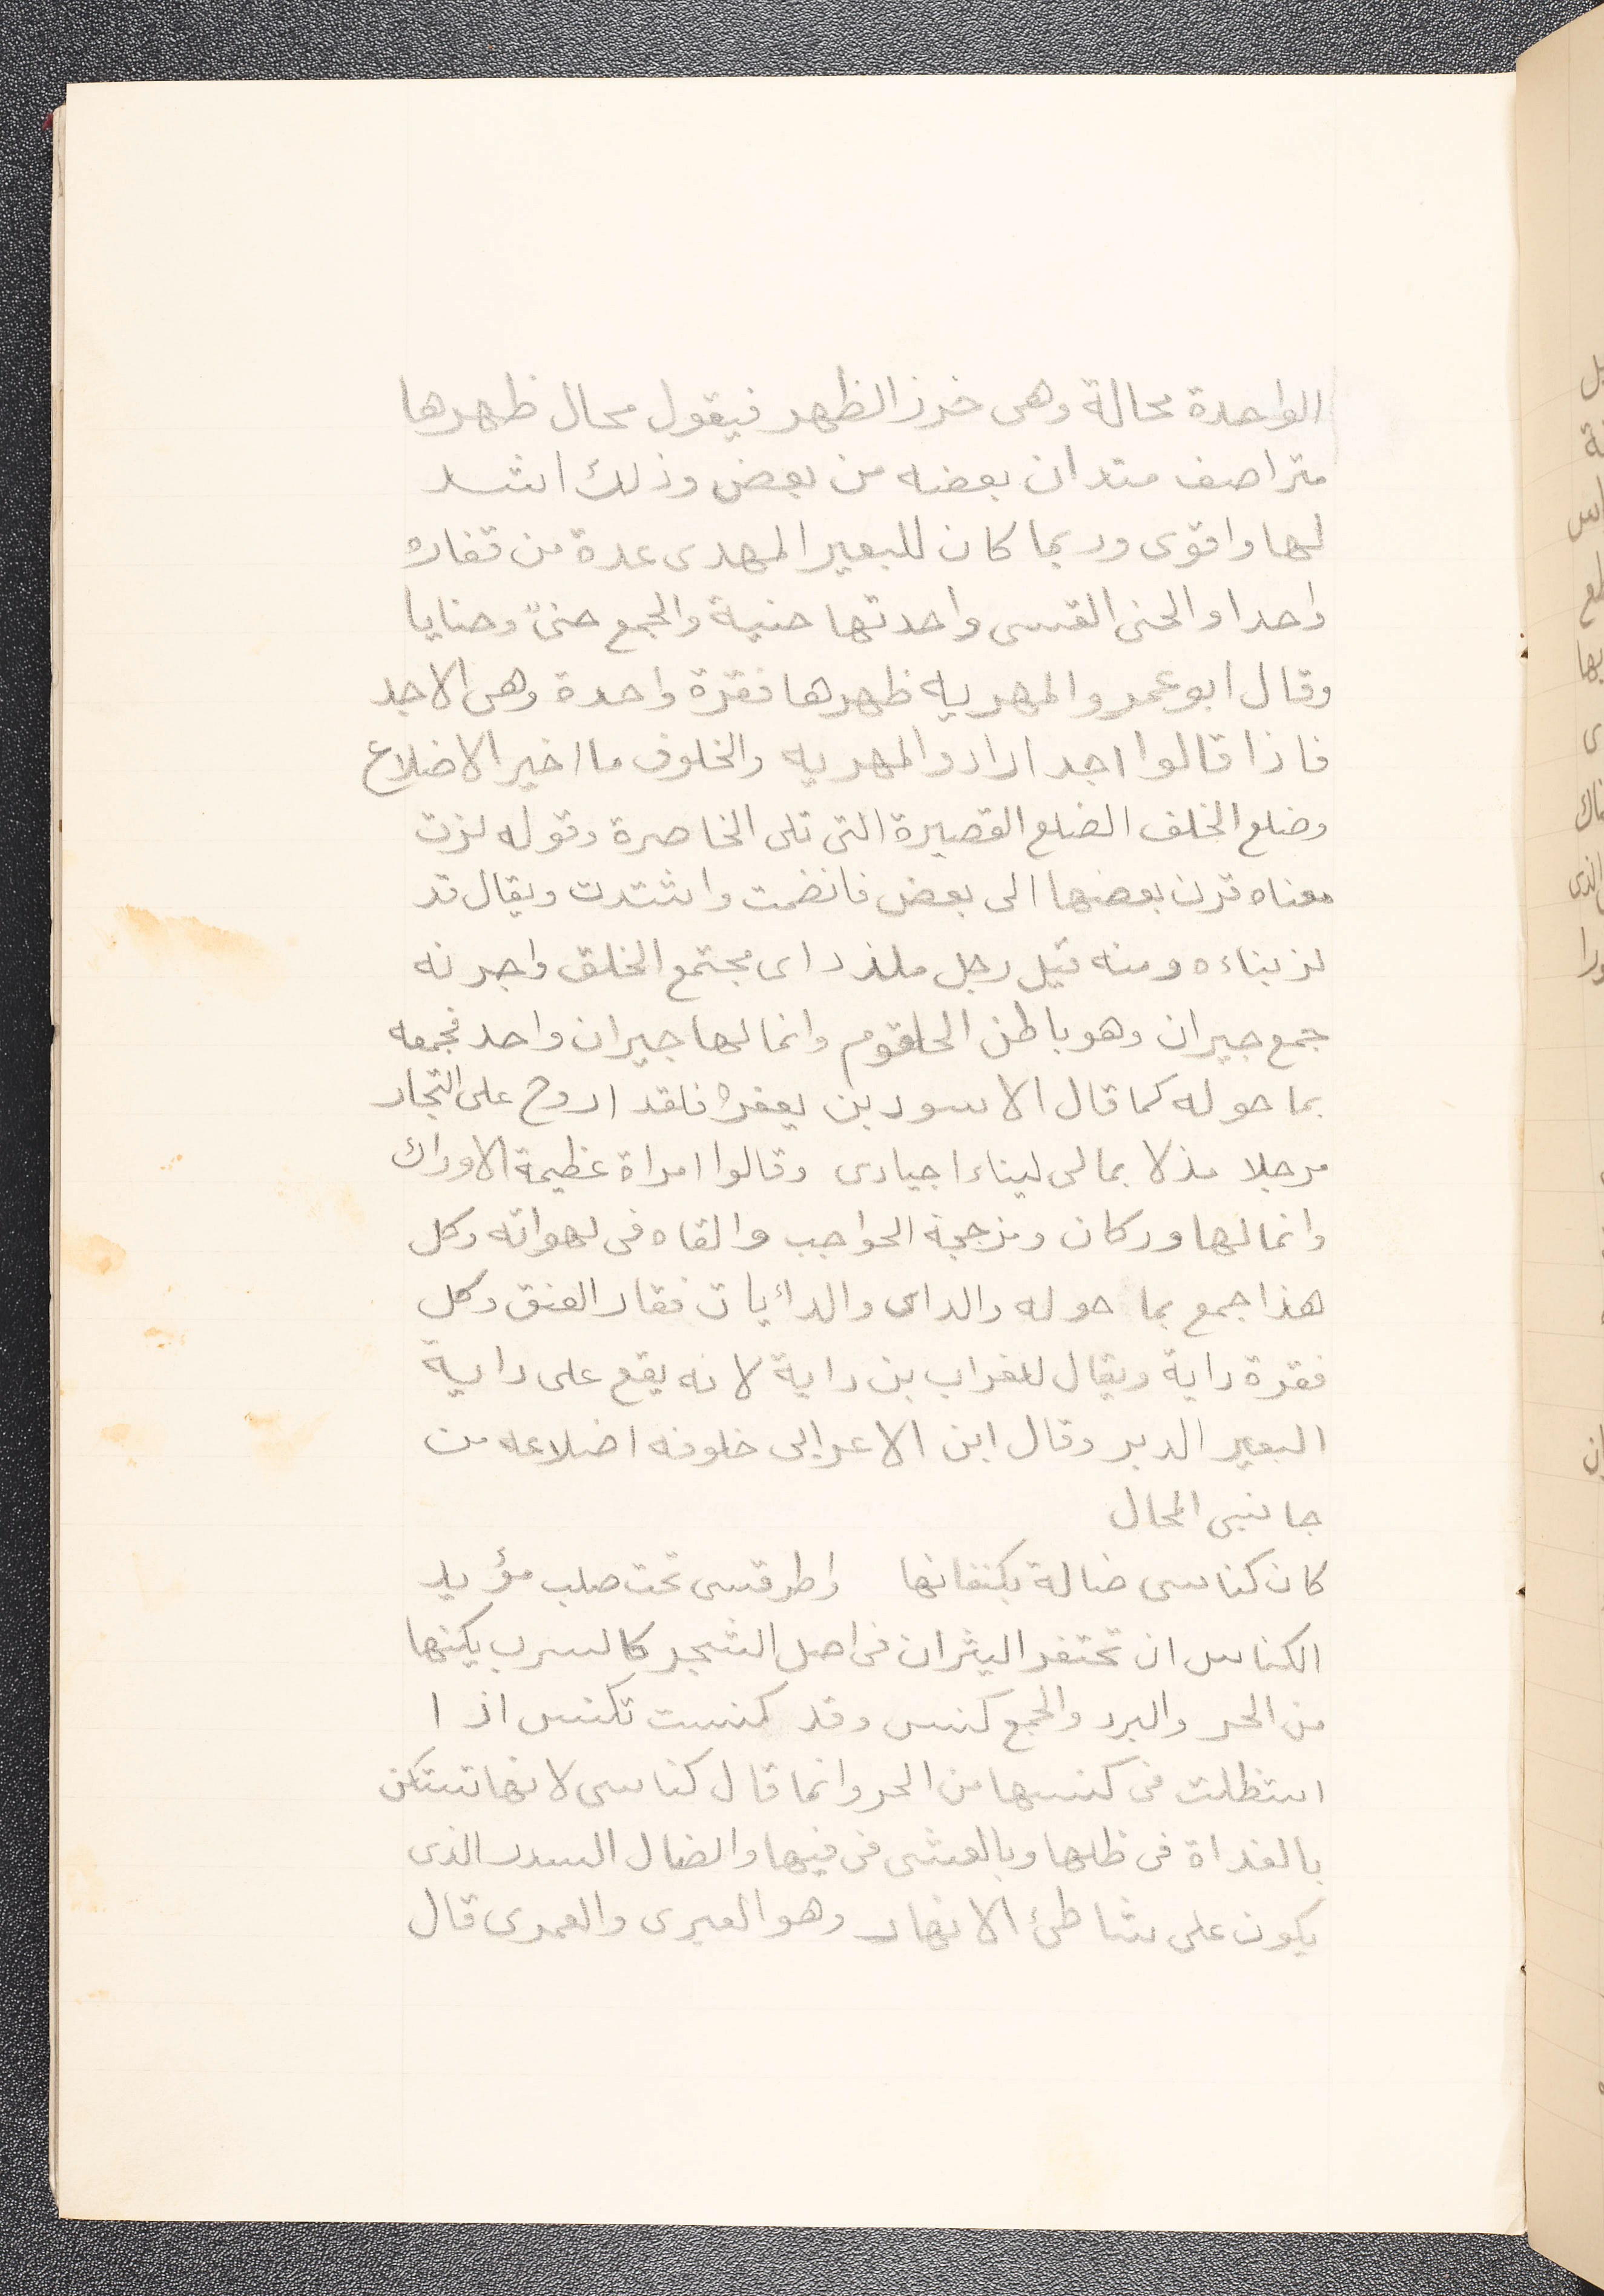 الواحدة محالة وهى خرز الظهر فيقول محال ظهرها
متراصف متدان بعضه من بعض وذلك اشد
لها واقوى وربما كان للبعير المهرى عدة من قفاره
واحدا والحنى القسى واحدتها حنية والجمع حنىً وحنايا
وقال ابو عمرو المهريه ظهرها فقرة واحدة وهى الاجد
فاذا قالوا اجد ارادو المهريه والخلوف ما اخير الاضلاع
وضلع الخلف الضلع القصيرة التى تلى الخاصرة وقوله لزت
معناه قرن بعضها الى بعض فانضمت واشتدت ويقال قد
لز بناءه ومنه قيل رجل ملذذ اى مجتمع الخلق واجرنه
جمع جيران وهو باطن الحلقوم وانما لها جيران واحد فجمعه
بما حوله كما قال الاسود بن يعفره فلقد اروح على التجار
مرجلا مذلا بمالى ليناء اجيادى وقالوا امراة عظيمة الاوراك
وانما لها وركان ومزججة الحواجب والقاه فى لهواته وكل
هذا جمع بما حوله والداى والدائيات فقار العنق وكل
فقرة داية ويقال للغراب بن داية لانه يقع على داية
البعير الدبر وقال ابن الاعرابى خلوفه اضلاعه من
جانبى المحال
كان كناسى ضالة يكنفانها واطر قسى تحت صلب مؤيد
الكناس ان تحتفر الثيران فى اصل الشجر كالسرب يكنها
من الحر والبرد والجمع كنس وقد كنست تكنس اذا
استظلت فى كنسها من الحر وانما قال كناسى لانها تستكن
بالغداة فى ظلها وبالعشى فى فيها والضال السدر الذى
يكون على شاطئ الانهار وهو العبرى والعمرى قال